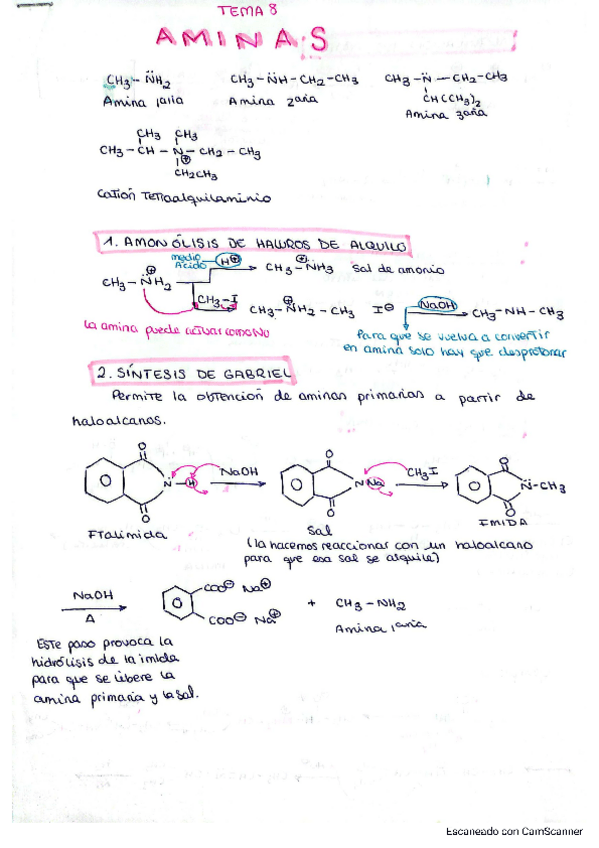 TEMA 8
AMINAS
CH3 - N̈H2
CH3 - N̈H - CH2 - CH3
CH3 - N̈ - CH2 - CH3
CH(CH3)2
Amina 1aria
Amina 2aria
Amina 3aria
CH3 CH3
CH3 - CH - N - CH2 - CH3
⊕
CH2CH3
Catión Tetraalquilaminio
1. AMONÓLISIS DE HALUROS DE ALQUILO
medio Ácido H⊕
CH3 - N̈H2 ⊕
CH3 - NH3 ⊕ Sal de amonio
CH3 - I
CH3 - NH2 - CH3 ⊕ I⊖
NaOH
CH3 - NH - CH3
La amina puede actuar como Nu
Para que se vuelva a convertir
en amina solo hay que desprotonar
2. SÍNTESIS DE GABRIEL
Permite la obtención de aminas primarias a partir de
haloalcanos.
O O O
N - H NaOH N Na CH3I N̈ - CH3
O O O
Ftalimida
Sal
IMIDA
(la hacemos reaccionar con un haloalcano
para que esa sal se alquile)
NaOH
Δ
COO⊖ Na⊕
COO⊖ Na⊕
+ CH3 - NH2
Amina 1aria
Este paso provoca la
hidrólisis de la imida
para que se libere la
amina primaria y la sal.
Escaneado con CamScanner